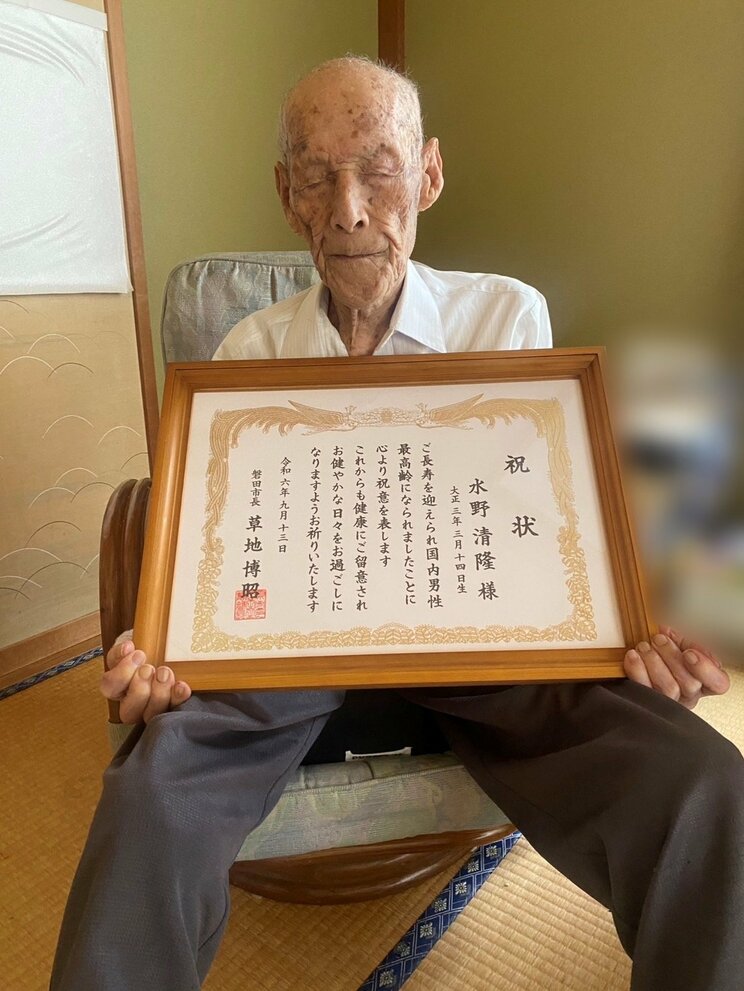 祝状
水野清隆様
大正三年三月十四日生
ご長寿を迎えられ国内男性
最高齢になられましたことに
心より祝意を表します
これからも健康にご留意され
お健やかな日々をお過ごしに
なりますようお祈りいたします
令和六年九月十三日
磐田市長 草地博昭